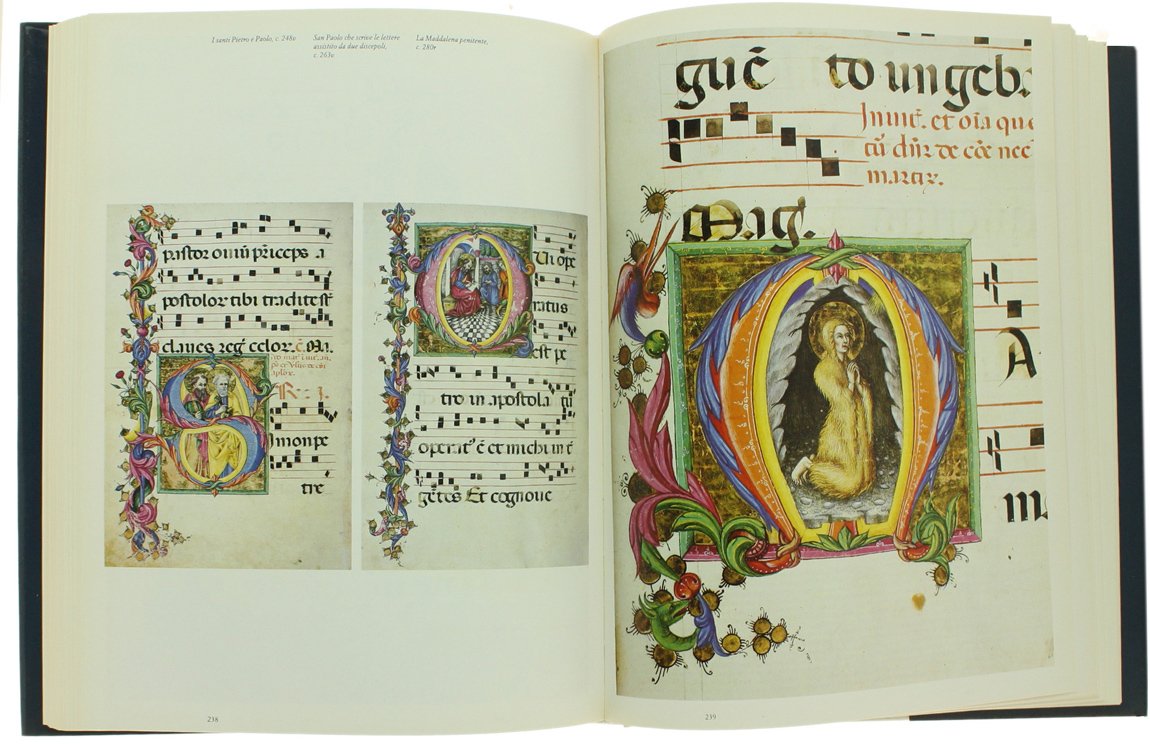 I santi Pietro e Paolo, c. 248v
San Paolo che scrive le lettere
assistito da due discepoli,
c. 263v
La Maddalena penitente,
c. 280r
pastor oviũ pr̃iceps a
postolor tibi tradite st̃
claves reg̃ celor. c̃. Ma.
R.
imon pe
tre
Qui ope
ratus
est pe
tro in apostola tũ
operat' ẽ et michi in t̃
gẽtes Et cognove
238
guẽ to ungeb.
Inuit̃. et oĩa que
tũ dñr de cõe nec
martir.
Mag̃.
A
m
239